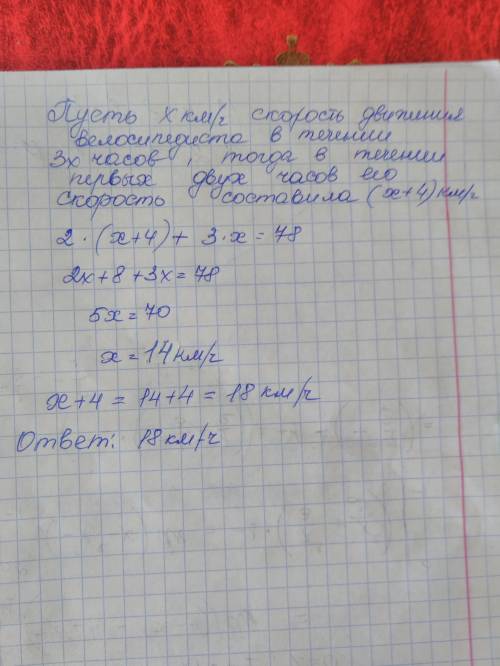 Пусть х км/ч скорость движения
велосипедиста в течении
3х часов, тогда в течении
первых двух часов его
скорость составила (х+4) км/ч
2·(х+4)+3·х=78
2х+8+3х=78
5х=70
х=14км/ч
х+4=14+4=18км/ч
Ответ: 18км/ч